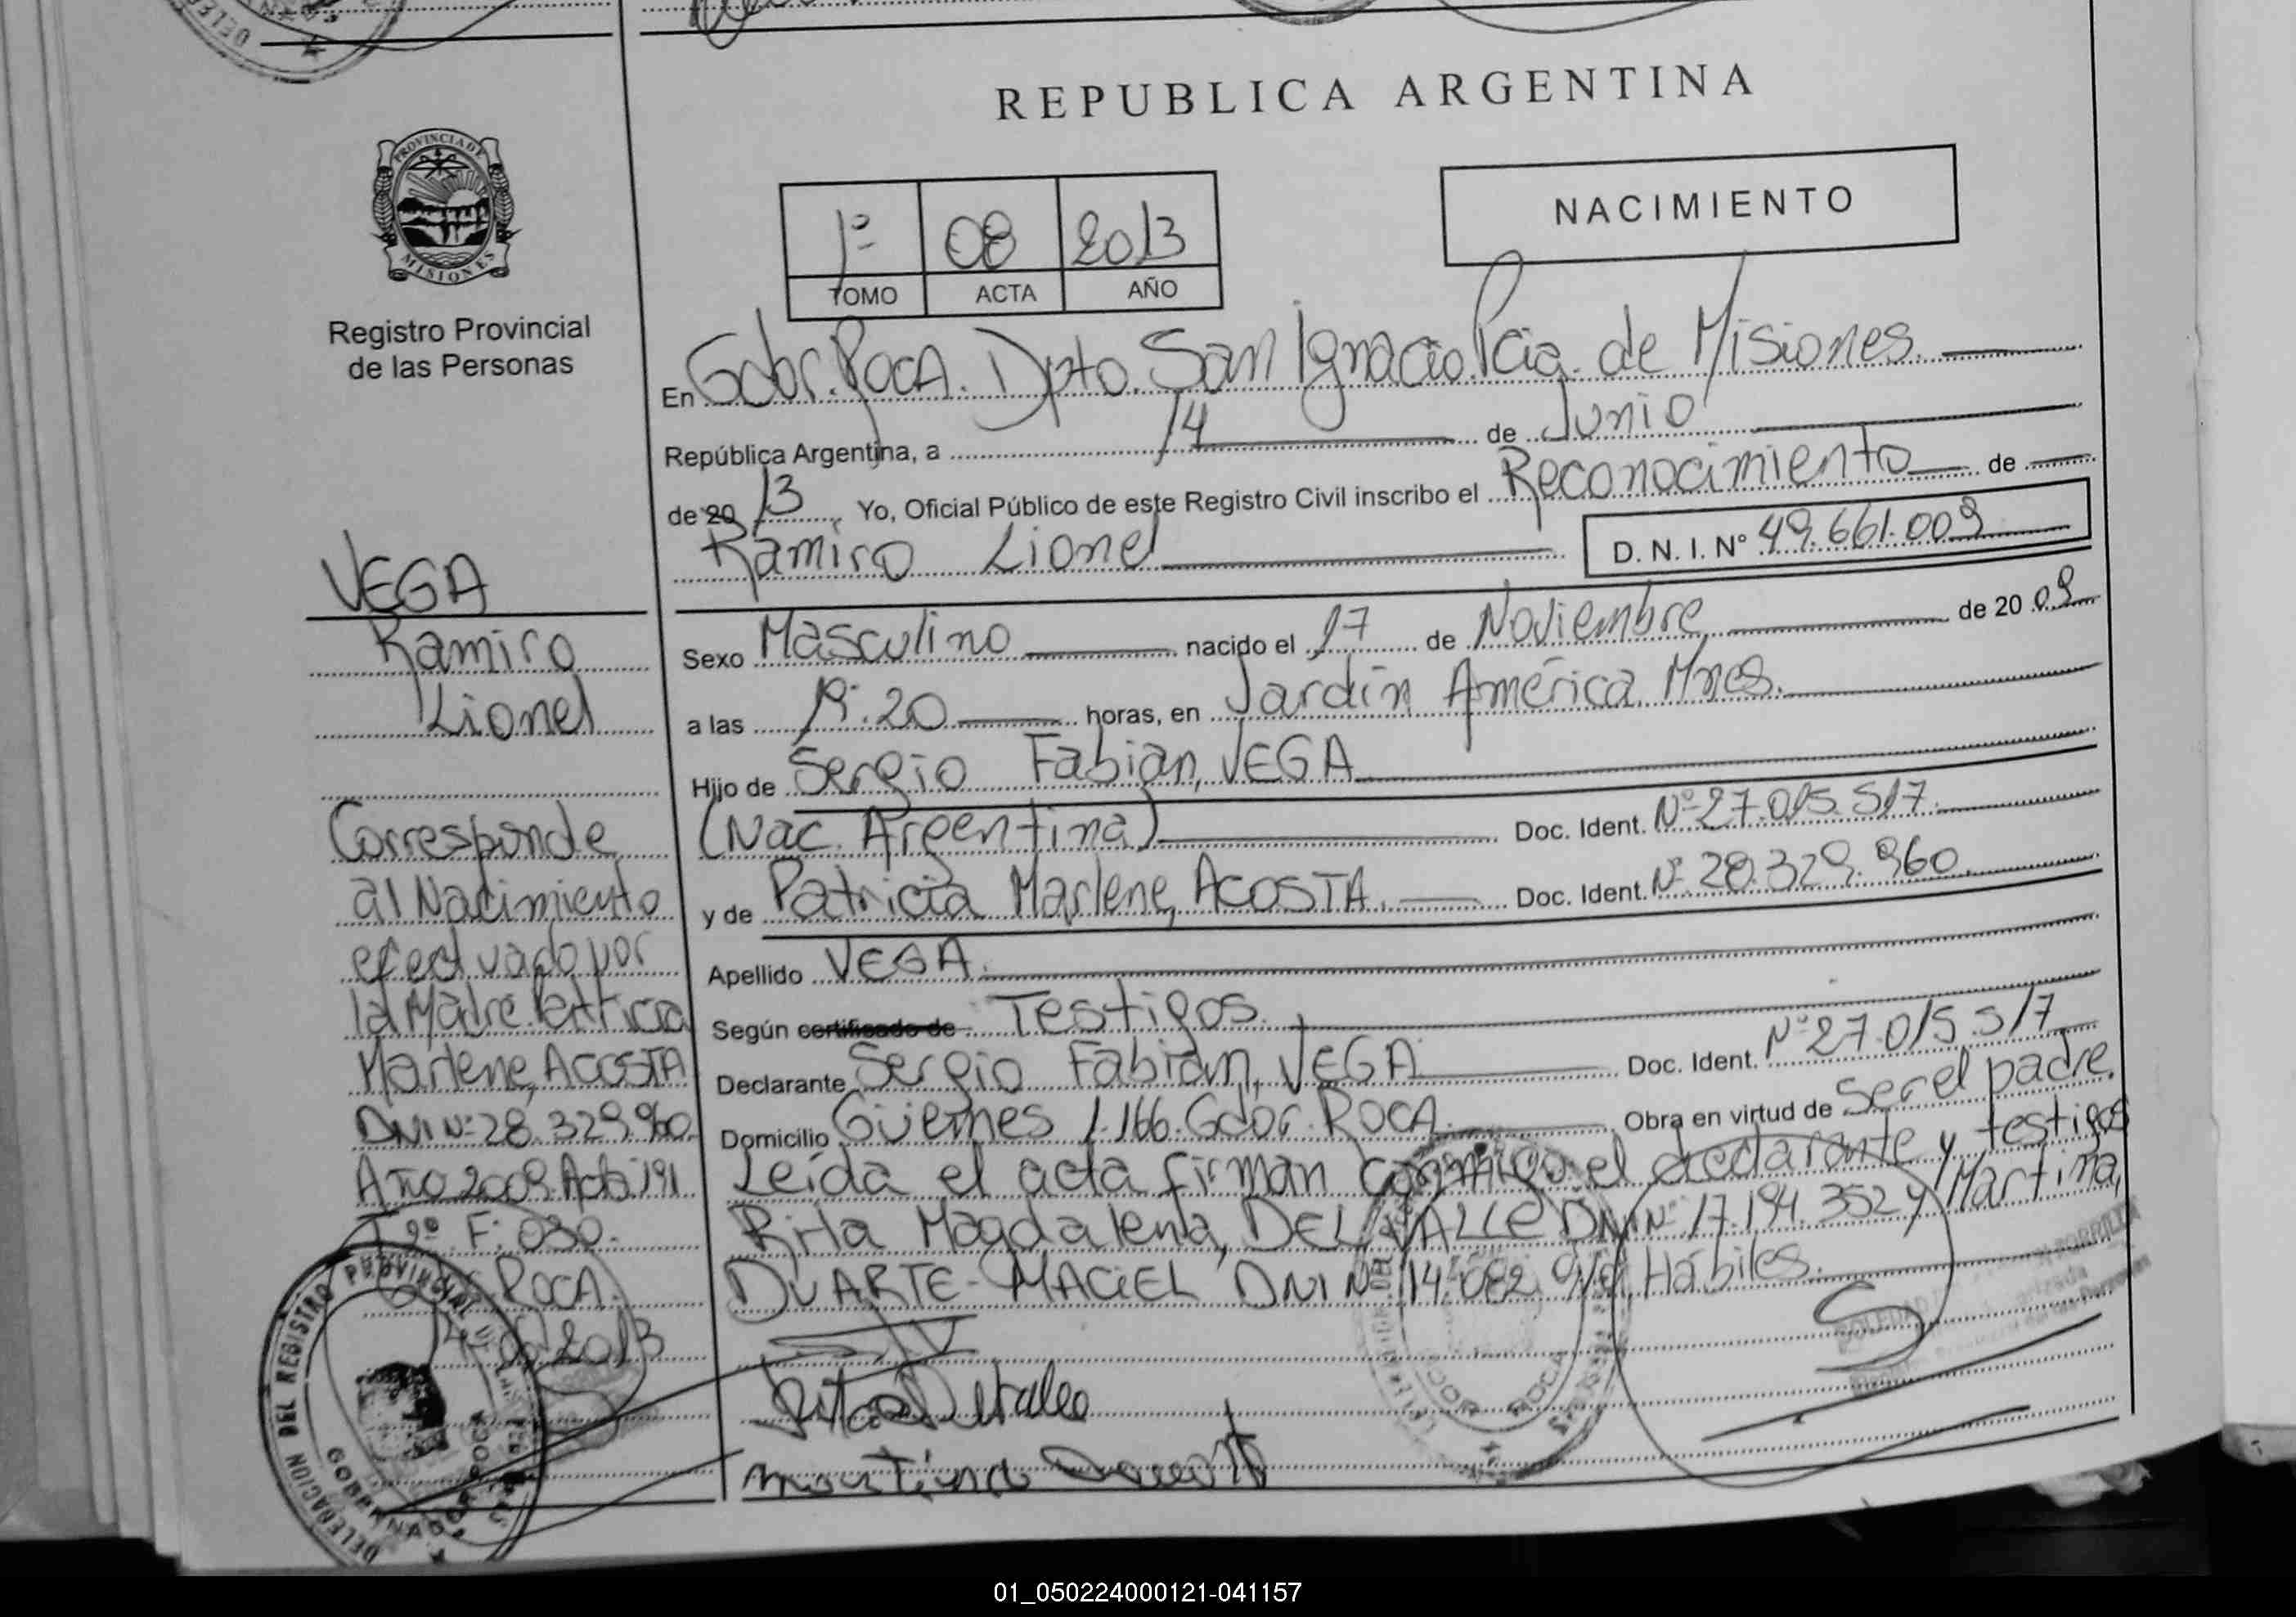 REPUBLICA ARGENTINA
PROVINCIA DE
MISIONES
Registro Provincial
de las Personas
NACIMIENTO
1º 08 2013
TOMO ACTA AÑO
En Gdor. Roca. Dpto. San Ignacio Pcia. de Misiones.
República Argentina, a 14 de Junio
de 20 13, Yo, Oficial Público de este Registro Civil inscribo el Reconocimiento de
Ramiro Lionel D. N. I. Nº 49.661.009
Sexo Masculino nacido el 17 de Noviembre de 20 09
a las 19:20 horas, en Jardín América Mnes.
Hijo de Sergio Fabian, VEGA
(Nac. Argentina) Doc. Ident. Nº 27.015.517.
y de Patricia Marlene, ACOSTA. Doc. Ident. Nº 28.329.960.
Apellido VEGA.
Según certificado de Testigos.
Declarante Sergio Fabian, VEGA Doc. Ident. Nº 27.015.517
Domicilio Güemes 1.166. Gdor. ROCA. Obra en virtud de ser el padre.
Leída el acta firman conmigo el declarante y testigos
Rita Magdalena, DEL VALLE DNI Nº 17.194.352 y Martina,
DUARTE-MACIEL DNI Nº 14.082. Hábiles.
VEGA
Ramiro
Lionel
Corresponde
al Nacimiento
efectuado por
la Madre Patricia
Marlene, ACOSTA
DNI Nº 28.329.960.
Año 2009. Acta 191
F: 090.
ROCA.
2013
DELEGACION DEL REGISTRO PROVINCIAL
ROCA
01_050224000121-041157